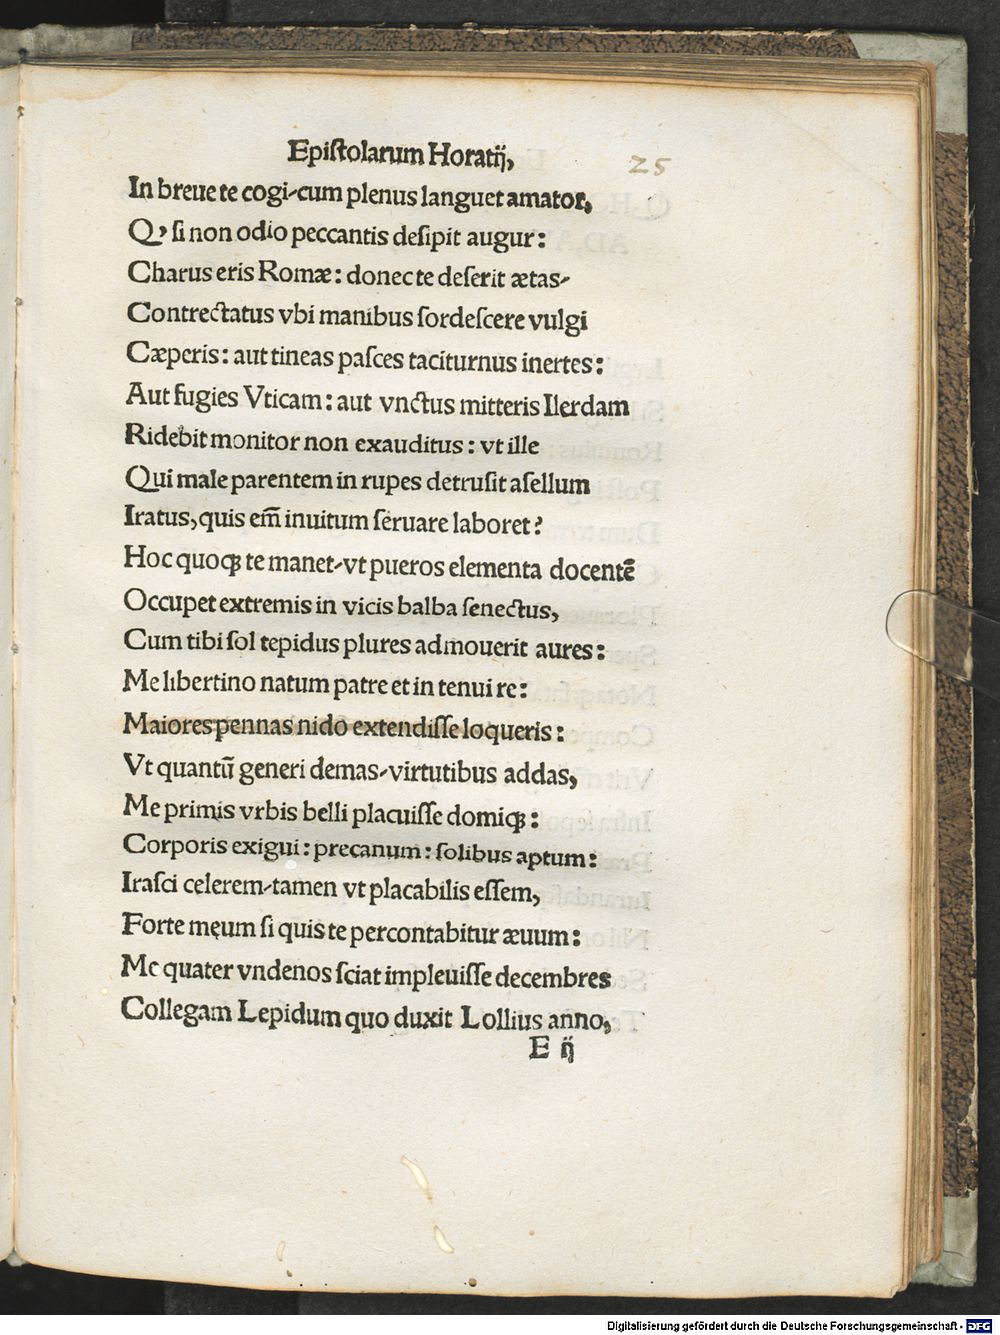 Epiſtolarum Horatij,
25
In breue te cogi-cum plenus languet amator,
Qꝫ ſi non odio peccantis deſipit augur:
Charus eris Romæ: donec te deſerit ætas-
Contrectatus vbi manibus ſordeſcere vulgi
Cæperis: aut tineas paſces taciturnus inertes:
Aut fugies Vticam: aut vnctus mitteris Ilerdam
Ridebit monitor non exauditus: vt ille
Qui male parentem in rupes detruſit aſellum
Iratus, quis em̄ inuitum ſeruare laboret?
Hoc quoqꝫ te manet-vt pueros elementa docentē
Occupet extremis in vicis balba ſenectus,
Cum tibi ſol tepidus plures admouerit aures:
Me libertino natum patre et in tenui re:
Maiores pennas nido extendiſſe loqueris:
Vt quantū generi demas-virtutibus addas,
Me primis vrbis belli placuiſſe domiqꝫ:
Corporis exigui: precanum: ſolibus aptum:
Iraſci celerem-tamen vt placabilis eſſem,
Forte męum ſi quis te percontabitur æuum:
Me quater vndenos ſciat impleuiſſe decembres
Collegam Lepidum quo duxit Lollius anno,
E ij
Digitalisierung gefördert durch die Deutsche Forschungsgemeinschaft - DFG